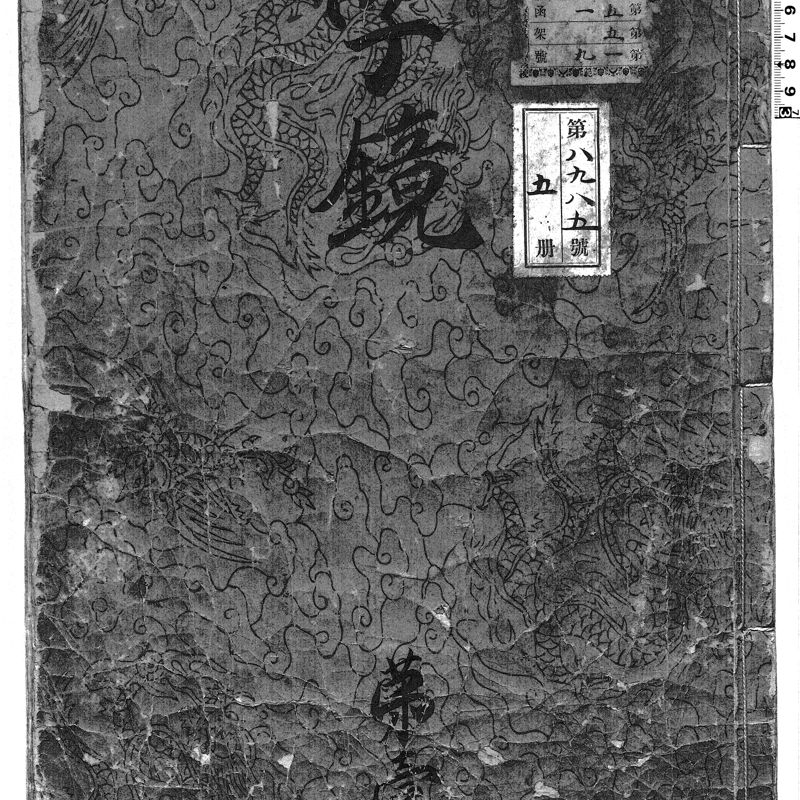 字鏡
第八九八五號
五冊
第五五一第
函架號
一九
榮
6 7 8 9